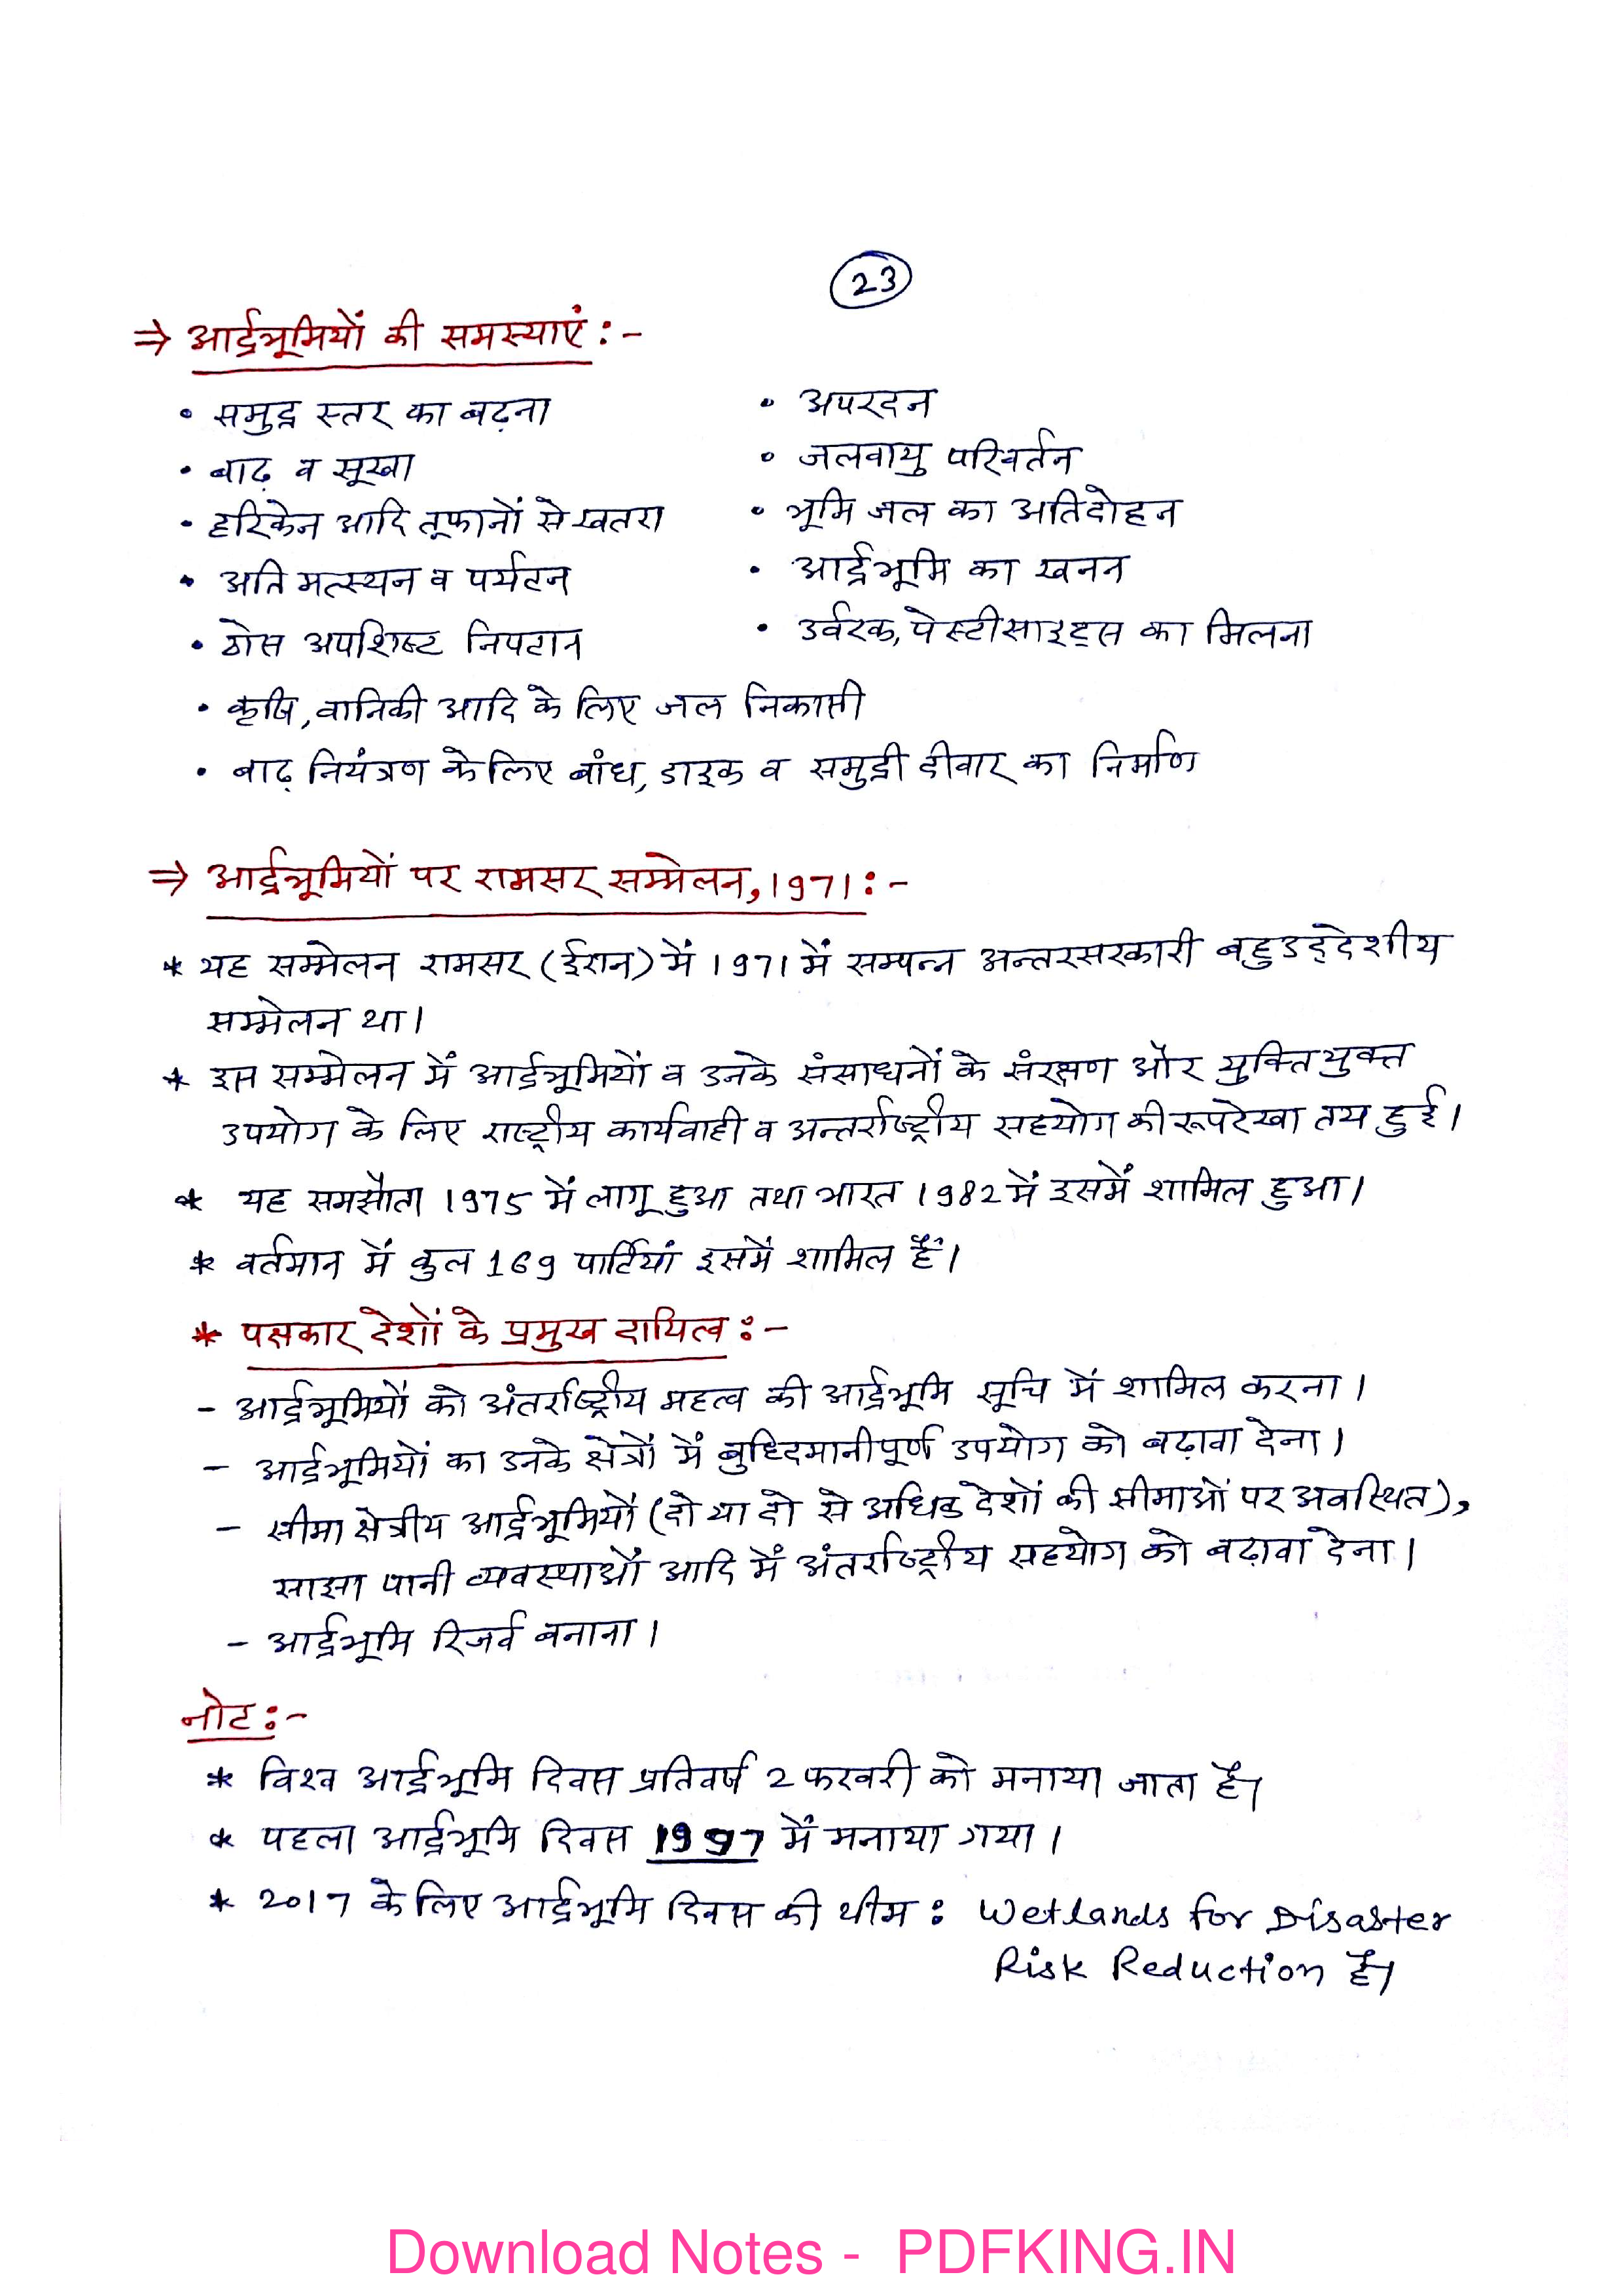 23
⇒ आर्द्रभूमियों की समस्याएं :-
• समुद्र स्तर का बढ़ना
• अपरदन
• बाढ़ व सूखा
• जलवायु परिवर्तन
• हरिकेन आदि तूफानों से खतरा
• भूमि जल का अतिदोहन
• अति मत्स्यन व पर्यटन
• आर्द्रभूमि का खनन
• ठोस अपशिष्ट निपटान
• उर्वरक, पेस्टीसाइड्स का मिलना
• कृषि, वानिकी आदि के लिए जल निकासी
• बाढ़ नियंत्रण के लिए बांध, डाइक व समुद्री दीवार का निर्माण
⇒ आर्द्रभूमियों पर रामसर सम्मेलन, 1971 :-
* यह सम्मेलन रामसर (ईरान) में 1971 में सम्पन्न अन्तरसरकारी बहुउद्देशीय
सम्मेलन था।
* इस सम्मेलन में आर्द्रभूमियों व उनके संसाधनों के संरक्षण और युक्तियुक्त
उपयोग के लिए राष्ट्रीय कार्यवाही व अन्तर्राष्ट्रीय सहयोग की रूपरेखा तय हुई।
* यह समझौता 1975 में लागू हुआ तथा भारत 1982 में इसमें शामिल हुआ।
* वर्तमान में कुल 169 पार्टियां इसमें शामिल हैं।
* पक्षकार देशों के प्रमुख दायित्व :-
- आर्द्रभूमियों को अंतर्राष्ट्रीय महत्व की आर्द्रभूमि सूचि में शामिल करना।
- आर्द्रभूमियों का उनके क्षेत्रों में बुध्दिमानीपूर्ण उपयोग को बढ़ावा देना।
- सीमा क्षेत्रीय आर्द्रभूमियों (दो या दो से अधिक देशों की सीमाओं पर अवस्थित),
साझा पानी व्यवस्थाओं आदि में अंतर्राष्ट्रीय सहयोग को बढ़ावा देना।
- आर्द्रभूमि रिजर्व बनाना।
नोट :-
* विश्व आर्द्रभूमि दिवस प्रतिवर्ष 2 फरवरी को मनाया जाता है।
* पहला आर्द्रभूमि दिवस 1997 में मनाया गया।
* 2017 के लिए आर्द्रभूमि दिवस की थीम : Wetlands for Disaster
Risk Reduction है।
Download Notes - PDFKING.IN